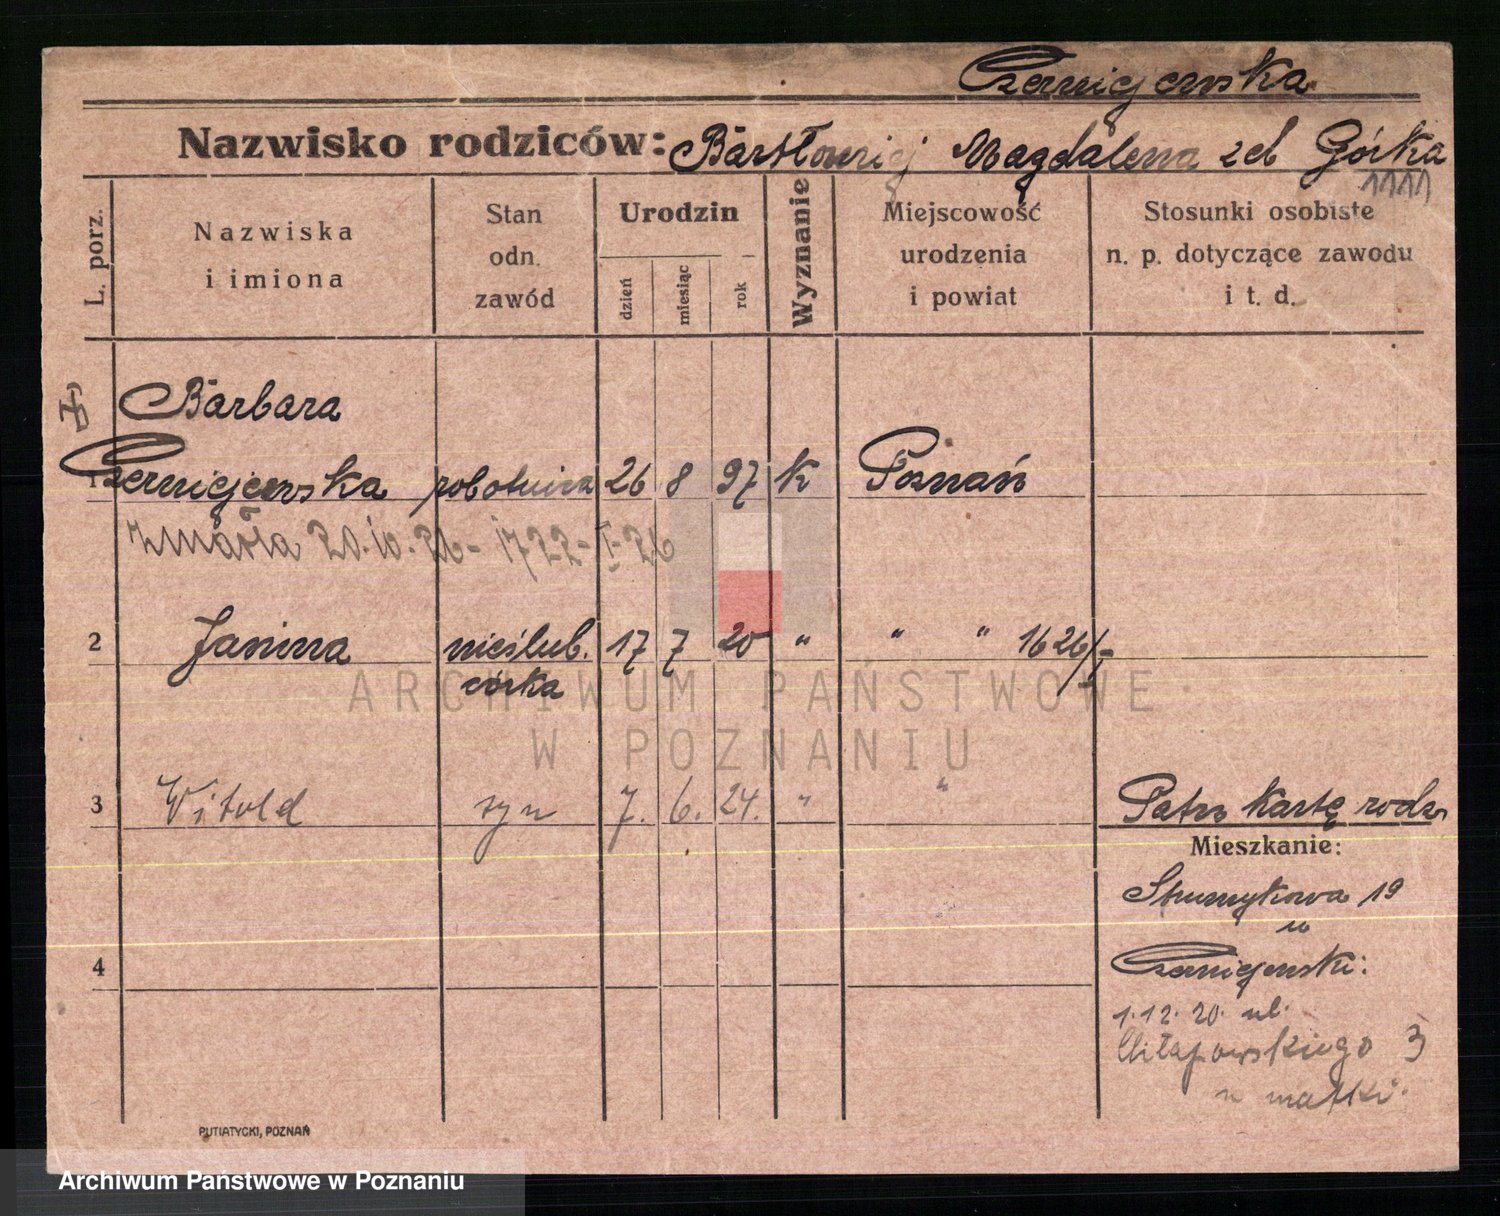 Czerniejewska
Nazwisko rodziców: Bartłomiej Magdalena z d Górka
1111
L. porz.
Nazwiska
i imiona
Stan
odn.
zawód
Urodzin
dzień
miesiąc
rok
Wyznanie
Miejscowość
urodzenia
i powiat
Stosunki osobiste
n. p. dotyczące zawodu
i t. d.
Barbara
1 Czerniejewska robotnica 26 8 97 k Poznań
zmarła
2 Janina nieślub. 17 7 20 " " " 1626/I
córka
ARCHIWUM PAŃSTWOWE
W POZNANIU
3 Witold syn 7. 6. 24. " " Patrz kartę rodz.
Mieszkanie:
Strumykowa 19
u
4 Czerniejewski:
1.12.20. ul.
Chłapowskiego 3
u matki.
PUTIATYCKI, POZNAŃ
Archiwum Państwowe w Poznaniu